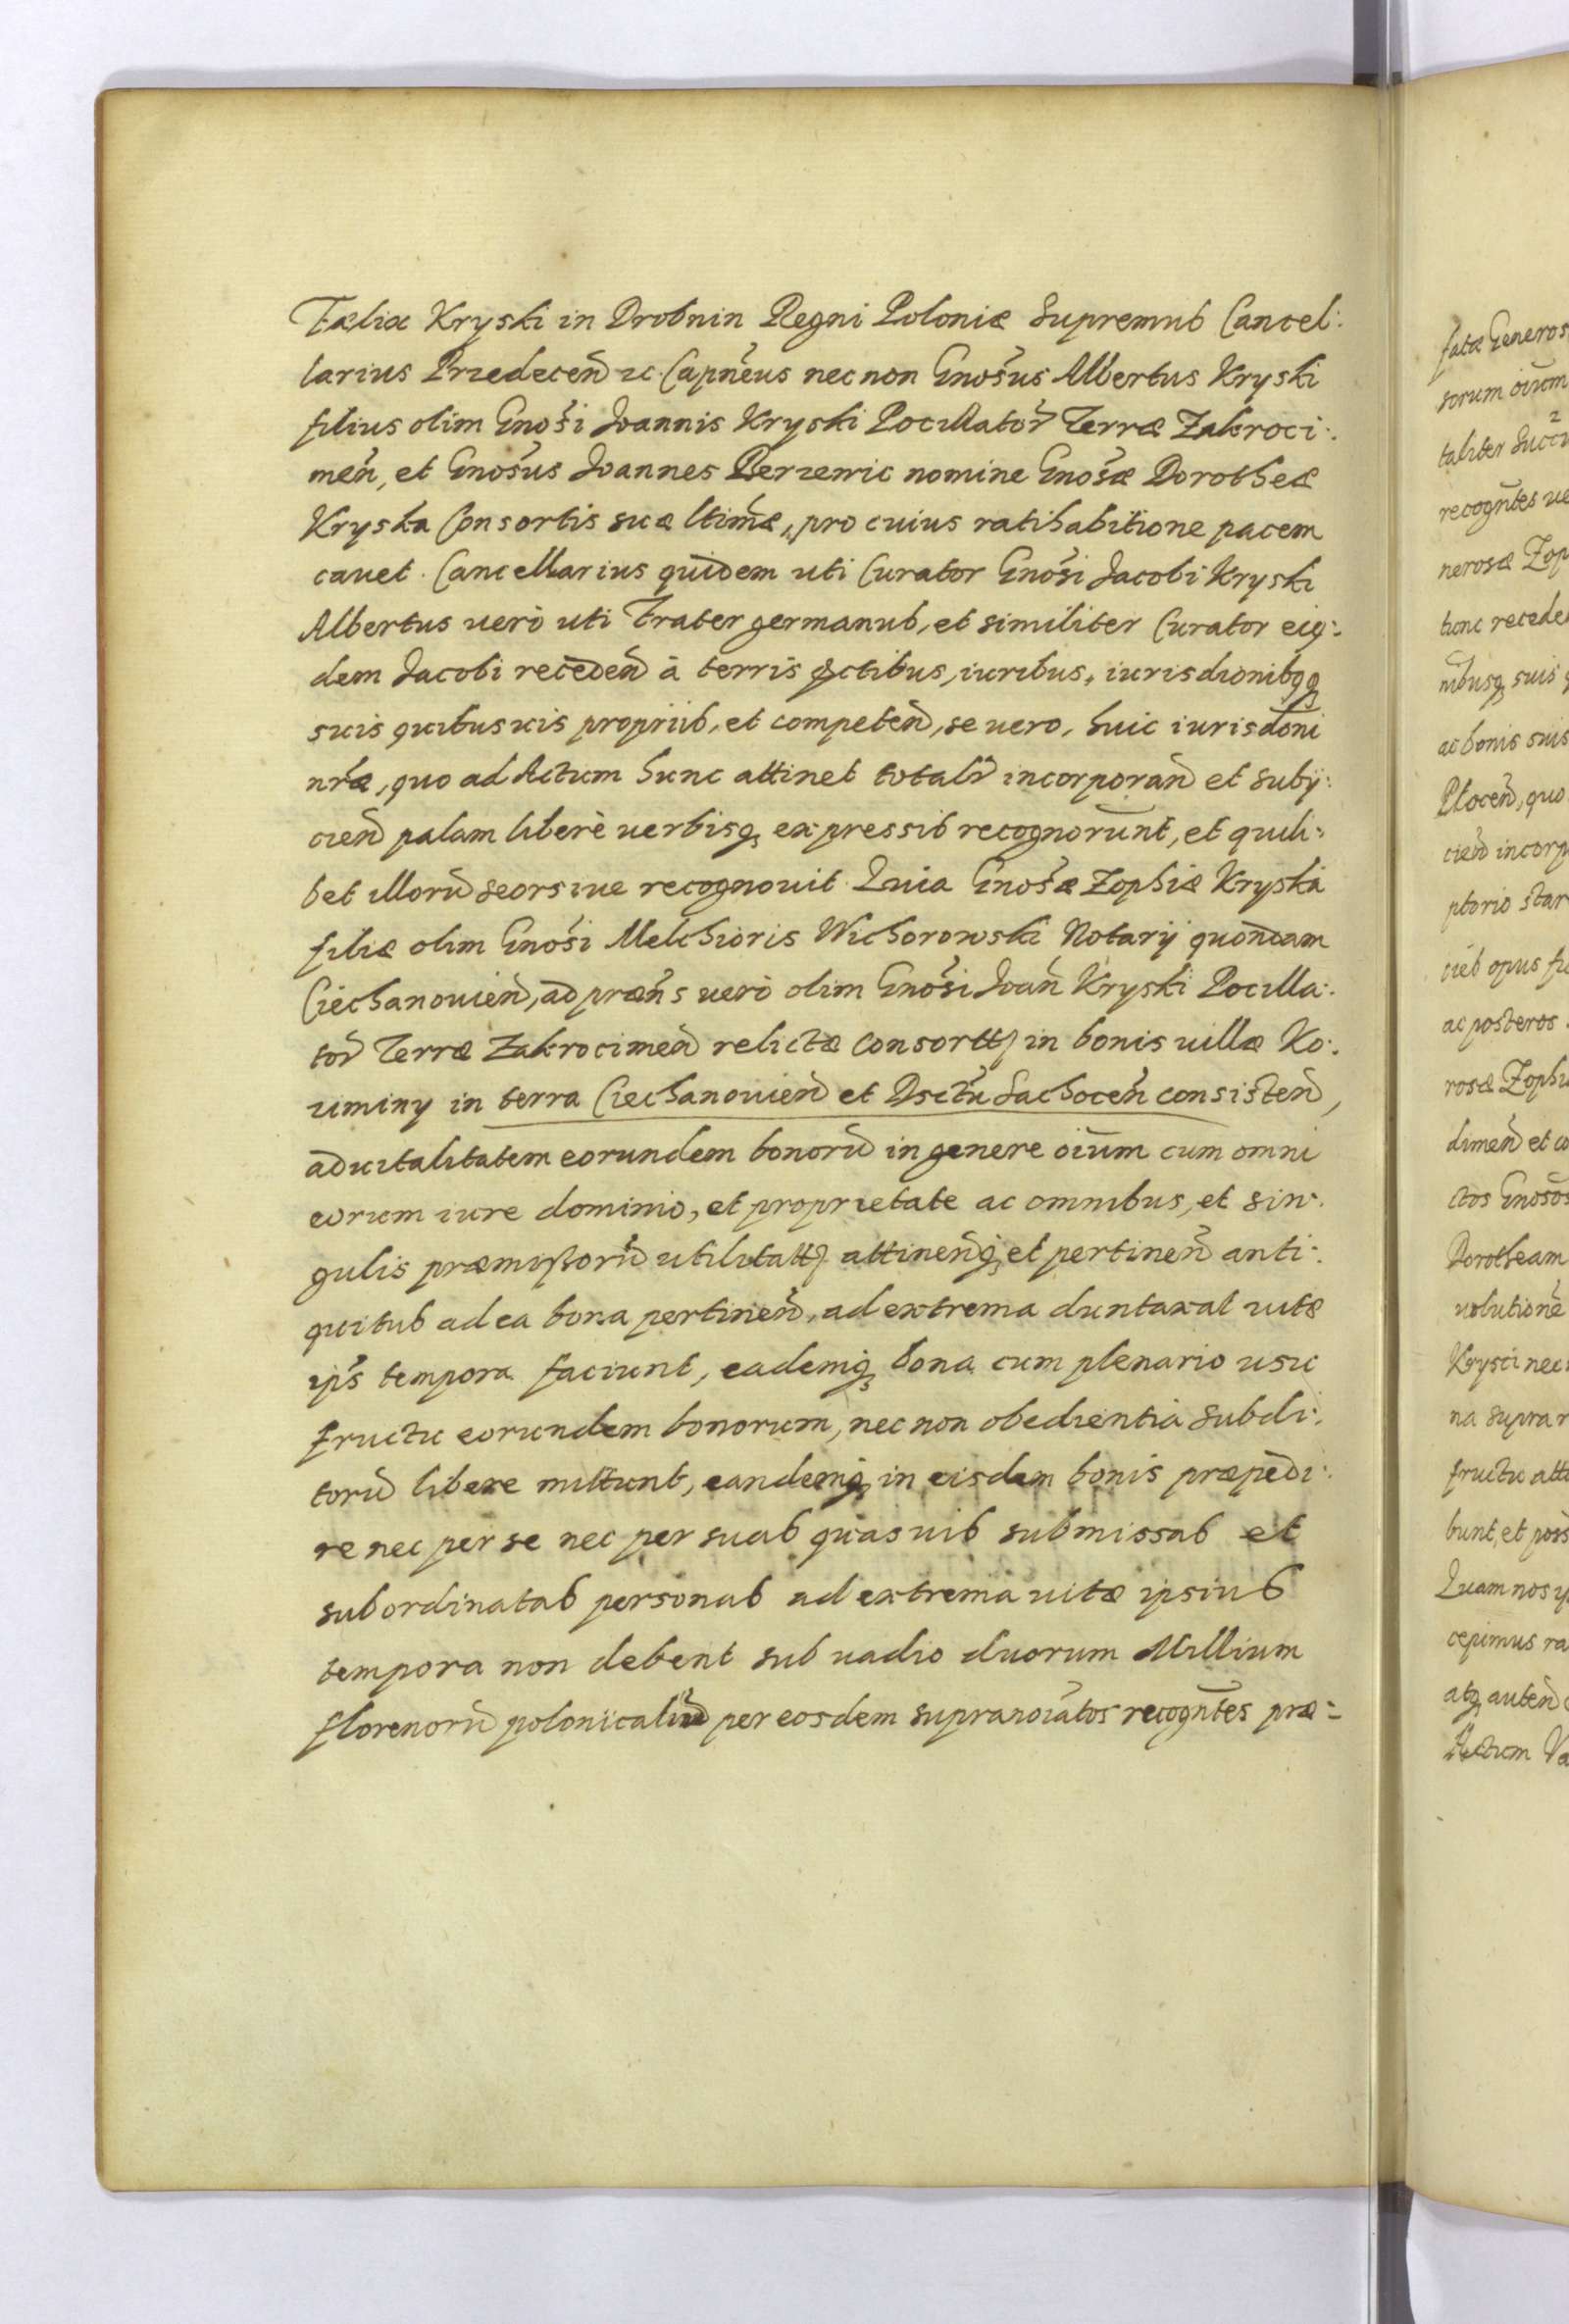 Fælix Kryski in Drobnin Regni Poloniæ Supremus Cancel:
larius Przedecen̄ ec. Capn̄eus nec non Gnos̄us Albertus Kryski
filius olim Gnos̄i Joannis Kryski Pocillator̄ Terræ Zakroci:
men̄, et Gnos̄us Joannes Perzenic nomine Gnos̄æ Dorotheæ
Kryska Consortis suæ ltimæ, pro cuius ratihabitione pacem
cauet. Cancellarius quidem uti Curator Gnos̄i Jacobi Kryski
Albertus uerò uti Frater germanus, et similiter Curator eiq:
dem Jacobi receden̄ à terris dctibus, iuribus, iurisdionibqq
suis quibusuis propriis, et competen̄, se uero, huic iurisdoni
nræ, quo ad Actum hunc attinet totalr̄ incorporan̄ et subij:
cien̄ palam liberè uerbisq, expressis recognorunt, et quili:
bet illorū seorsiue recognouit. Quia Gnos̄æ Zophiæ Kryska
filiæ olim Gnos̄i Melchioris Wichorowski Notarij quondam
Ciechanouien̄, ad præn̄s uerò olim Gnos̄i Joan̄ Kryski Pocilla:
tor̄ Terræ Zakrocimen̄ relictæ consortt in bonis uillæ Ko:
ziminy in terra Ciechanouien̄ et Dsctū Sachocen̄ consisten̄,
aduitalitatem eorundem bonorū in genere oium cum omni
eorum iure dominio, et proprietate ac omnibus, et sin:
gulis præmissorū utilitatt attinenq, et pertinen̄ anti:
quitus ad ea bona pertinen̄, ad extrema duntaxat uitæ
ips̄ tempora faciunt, eademq, bona cum plenario usu
fructu eorundem bonorum, nec non obedientia subdi:
torū libere mittunt, eandemq, in eisdem bonis præpedi:
re nec per se nec per suas quasuis submissas et
subordinatas personas ad extrema uitæ ipsius
tempora non debent sub uadio duorum Millium
florenorū polonicaliū per eosdem supranoiatos recogn̄tes præ:
fatæ Generos
sorum oium
taliter Succ
recogn̄tes ue
nerosæ Zop
tione recede
nibusq, suis
ac bonis suis
Plocen̄, quo
cien̄ incorp
ptorio star
ies opus fu
ac posteros
rosæ Zophi
dimen̄ et co
ctos Gnosos
Dorotheam
uolutione
Krysci nec
na supra r
fructu atti
bunt, et poss
Quam nos y
cepimus ra
atq, auten̄
Actum Va